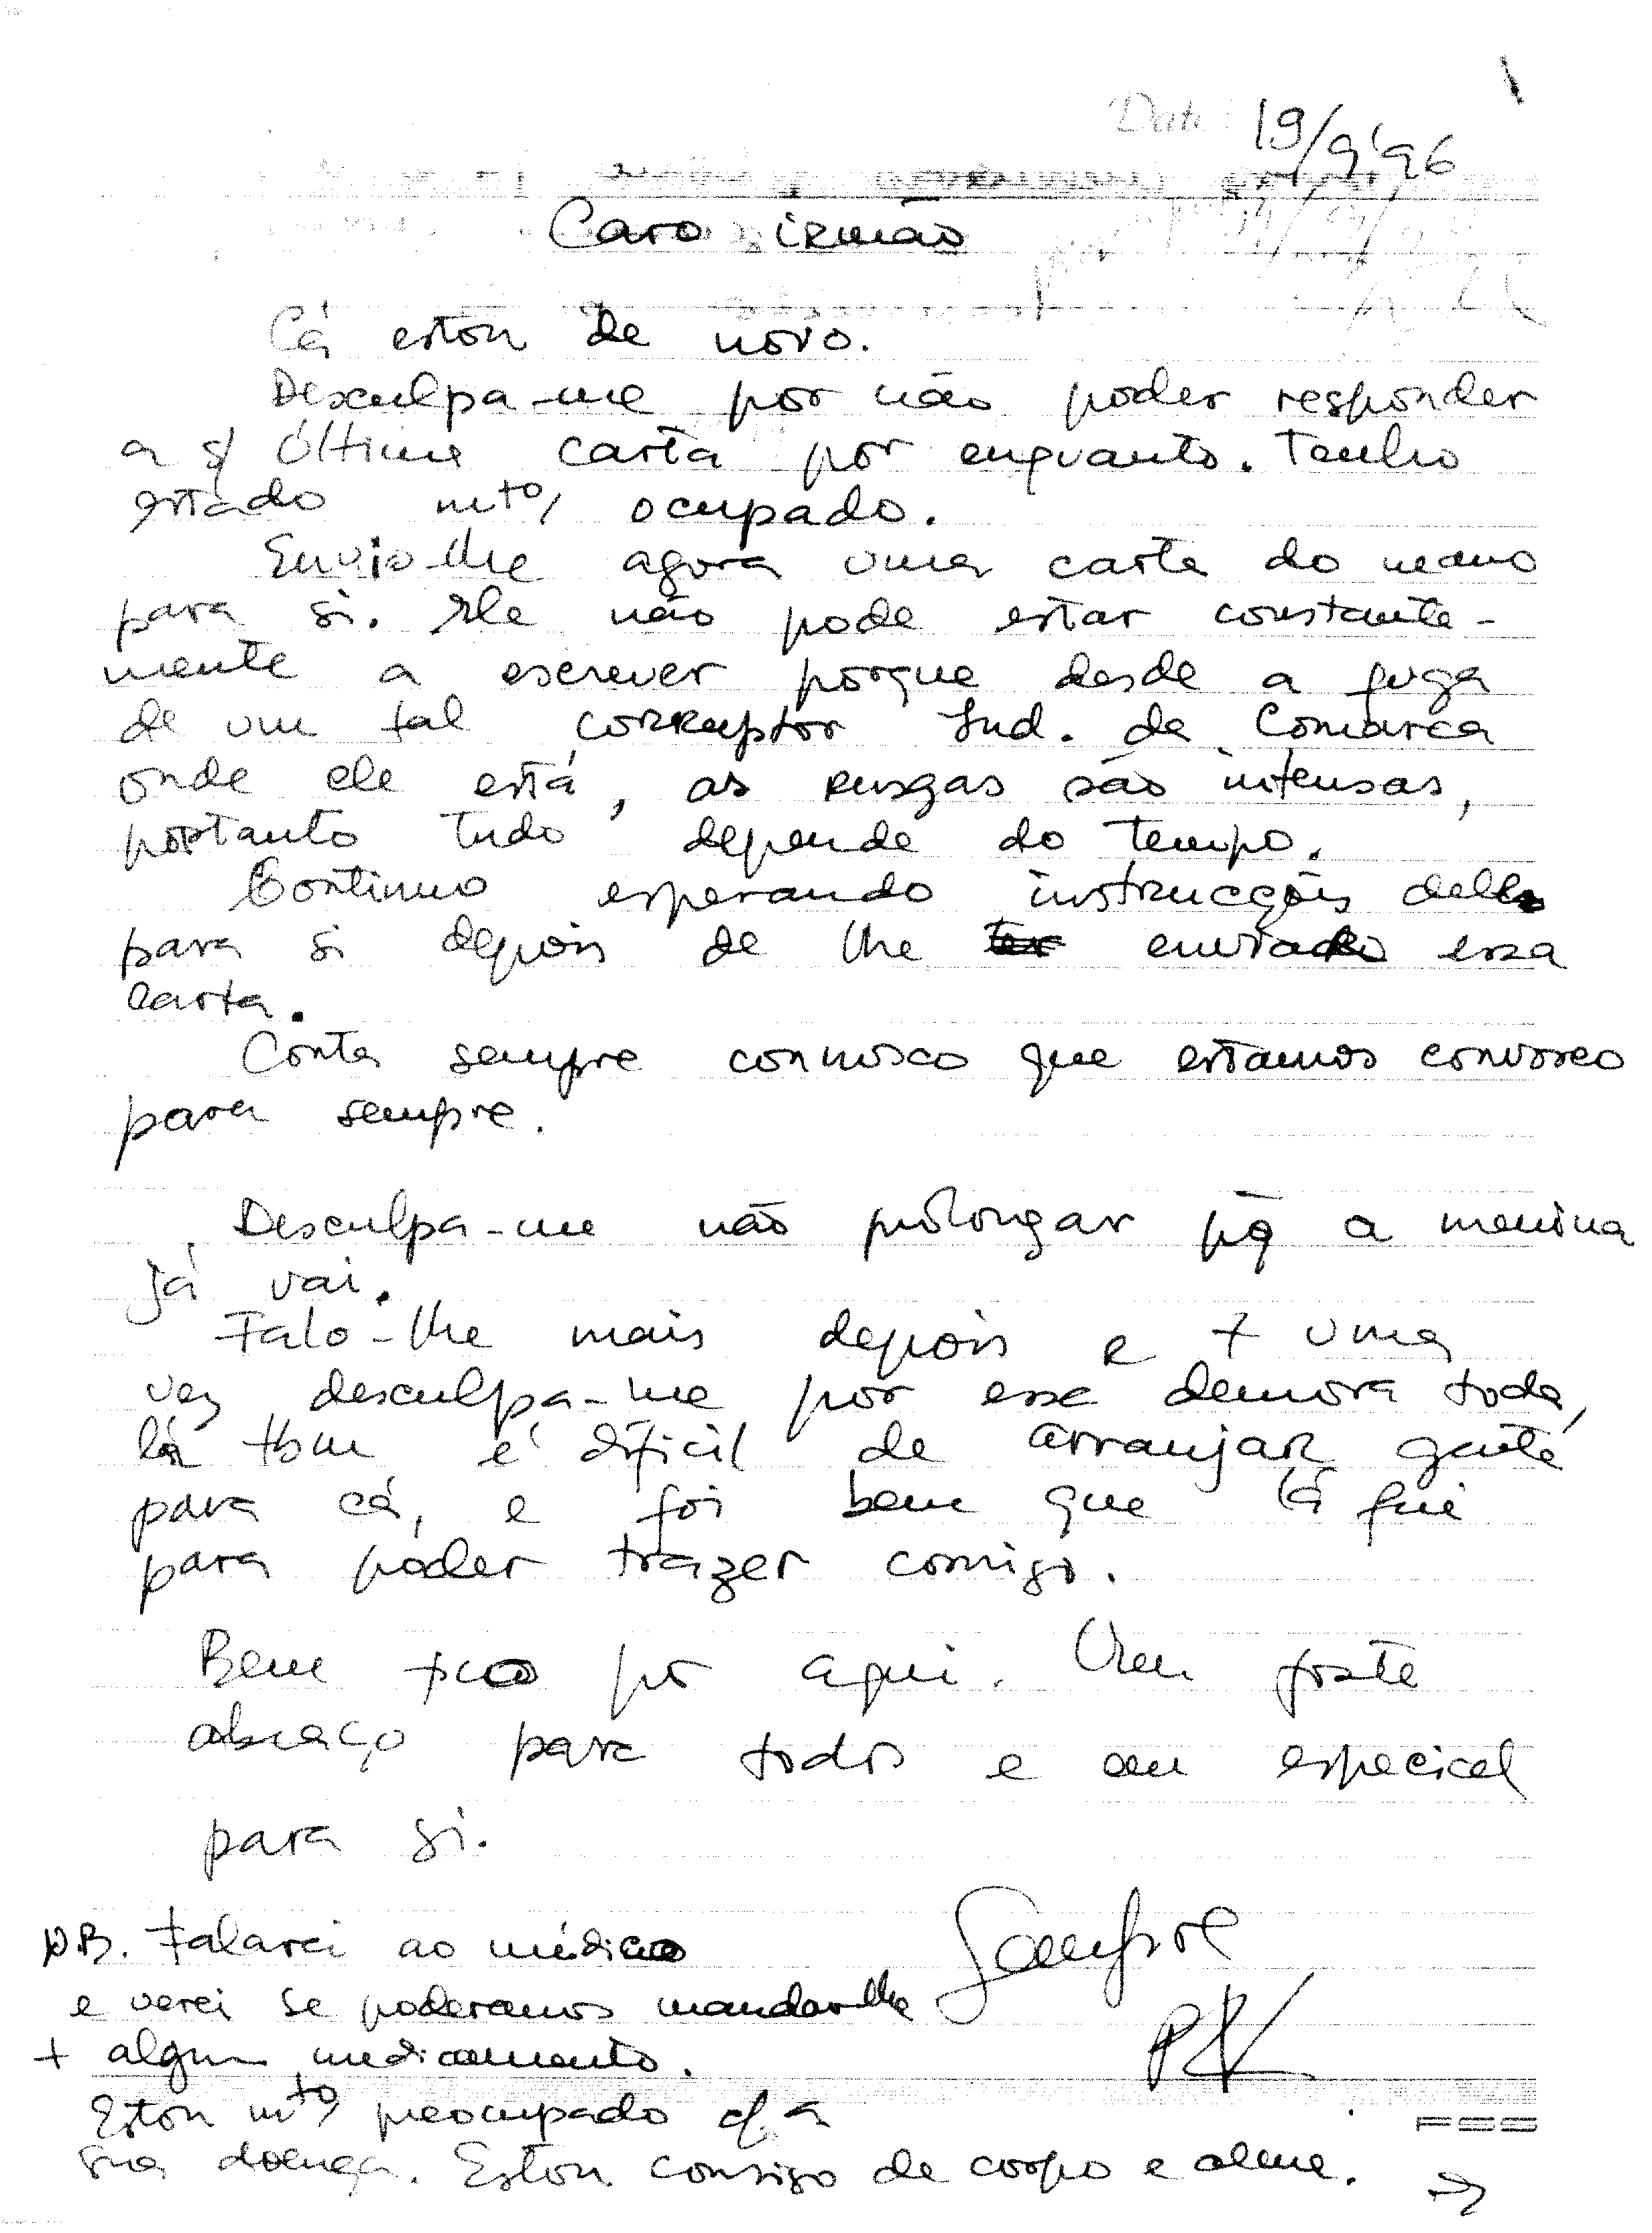 Data: 19/9/96
Caro irmão
Cá estou de novo.
Desculpa-me por não poder responder
a s/ última carta por enquanto. Tenho
estado mto/ ocupado.
Envio-lhe agora uma carta do mano
para si. Ele não pode estar constante-
mente a escrever porque desde a fuga
de um tal corruptor Ind. da Comarca
onde ele está, as rusgas são intensas,
portanto tudo depende do tempo.
Continuo esperando instrucções dele
para si depois de lhe enviado essa
carta.
Conta sempre connosco que estamos convosco
para sempre.
Desculpa-me não prolongar pq a menina
já vai.
Falo-lhe mais depois e + uma
vez desculpa-me por essa demora toda,
lá tbm é difícil de arranjar gente
para cá, e foi bem que lá fui
para poder trazer comigo.
Bem fico por aqui. Um forte
abraço para todos e em especial
para si.
Sempre
PK
N.B. Falarei ao médico
e verei se poderamos mandar-lhe
+ algum medicamento.
Estou mto/ preocupado c/ a
sua doença. Estou consigo de corpo e alma.
FSS
→